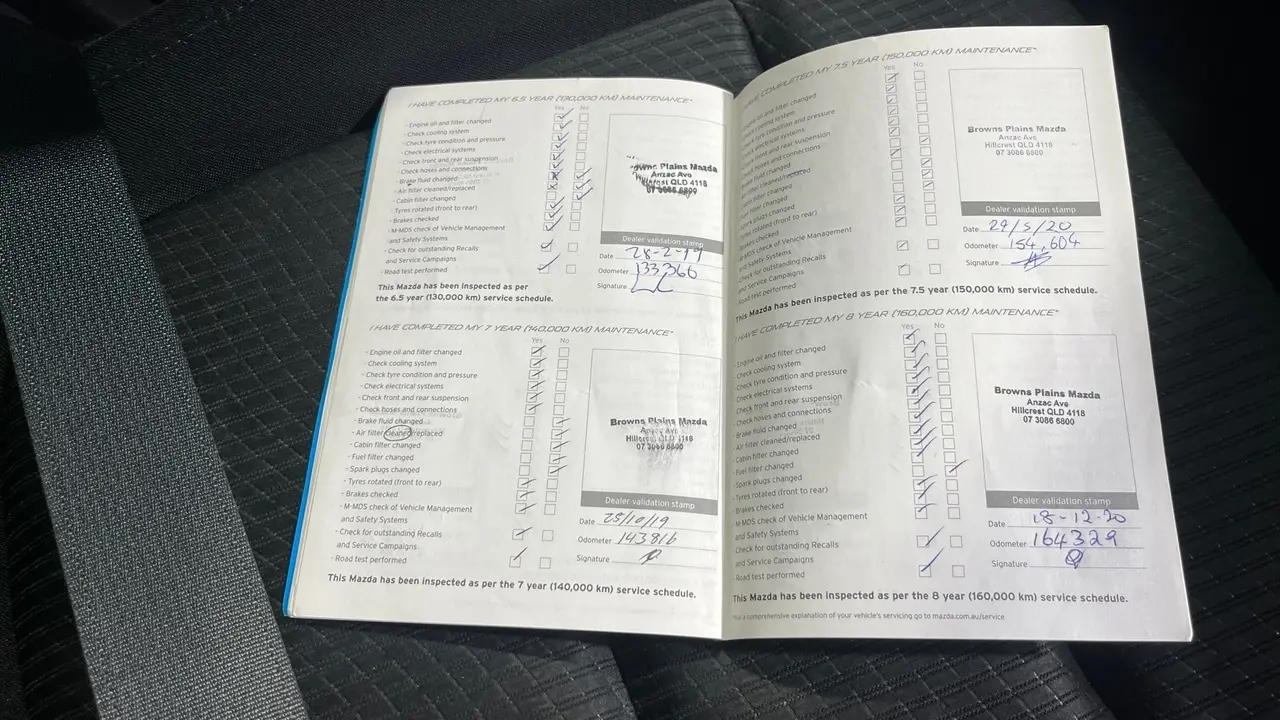 I HAVE COMPLETED MY 6.5 YEAR (130,000 KM) MAINTENANCE*
Yes No
- Engine oil and filter changed
- Check cooling system
- Check tyre condition and pressure
- Check electrical systems
- Check front and rear suspension
- Check hoses and connections
- Brake fluid changed
- Air filter cleaned/replaced
- Cabin filter changed
- Tyres rotated (front to rear)
- Brakes checked
- M-MDS check of Vehicle Management
and Safety Systems
- Check for outstanding Recalls
and Service Campaigns
- Road test performed
Browns Plains Mazda
Anzac Ave
Hillcrest QLD 4118
07 3086 6800
Dealer validation stamp
Date 28-2-19
Odometer 133,360
Signature
This Mazda has been inspected as per
the 6.5 year (130,000 km) service schedule.
I HAVE COMPLETED MY 7 YEAR (140,000 KM) MAINTENANCE*
Yes No
- Engine oil and filter changed
- Check cooling system
- Check tyre condition and pressure
- Check electrical systems
- Check front and rear suspension
- Check hoses and connections
- Brake fluid changed
- Air filter cleaned/replaced
- Cabin filter changed
- Fuel filter changed
- Spark plugs changed
- Tyres rotated (front to rear)
- Brakes checked
- M-MDS check of Vehicle Management
and Safety Systems
- Check for outstanding Recalls
and Service Campaigns
- Road test performed
Browns Plains Mazda
Anzac Ave
Hillcrest QLD 4118
07 3086 6800
Dealer validation stamp
Date 25/10/19
Odometer 143816
Signature
This Mazda has been inspected as per the 7 year (140,000 km) service schedule.
I HAVE COMPLETED MY 7.5 YEAR (150,000 KM) MAINTENANCE*
Yes No
- Engine oil and filter changed
- Check cooling system
- Check tyre condition and pressure
- Check electrical systems
- Check front and rear suspension
- Check hoses and connections
- Brake fluid changed
- Air filter cleaned/replaced
- Cabin filter changed
- Fuel filter changed
- Spark plugs changed
- Tyres rotated (front to rear)
- Brakes checked
- M-MDS check of Vehicle Management
and Safety Systems
- Check for outstanding Recalls
and Service Campaigns
- Road test performed
Browns Plains Mazda
Anzac Ave
Hillcrest QLD 4118
07 3086 6800
Dealer validation stamp
Date 29/5/20
Odometer 154,604
Signature
This Mazda has been inspected as per the 7.5 year (150,000 km) service schedule.
I HAVE COMPLETED MY 8 YEAR (160,000 KM) MAINTENANCE*
Yes No
- Engine oil and filter changed
- Check cooling system
- Check tyre condition and pressure
- Check electrical systems
- Check front and rear suspension
- Check hoses and connections
- Brake fluid changed
- Air filter cleaned/replaced
- Cabin filter changed
- Fuel filter changed
- Spark plugs changed
- Tyres rotated (front to rear)
- Brakes checked
- M-MDS check of Vehicle Management
and Safety Systems
- Check for outstanding Recalls
and Service Campaigns
- Road test performed
Browns Plains Mazda
Anzac Ave
Hillcrest QLD 4118
07 3086 6800
Dealer validation stamp
Date 18-12-20
Odometer 164329
Signature
This Mazda has been inspected as per the 8 year (160,000 km) service schedule.
a comprehensive explanation of your vehicle's servicing go to mazda.com.au/service